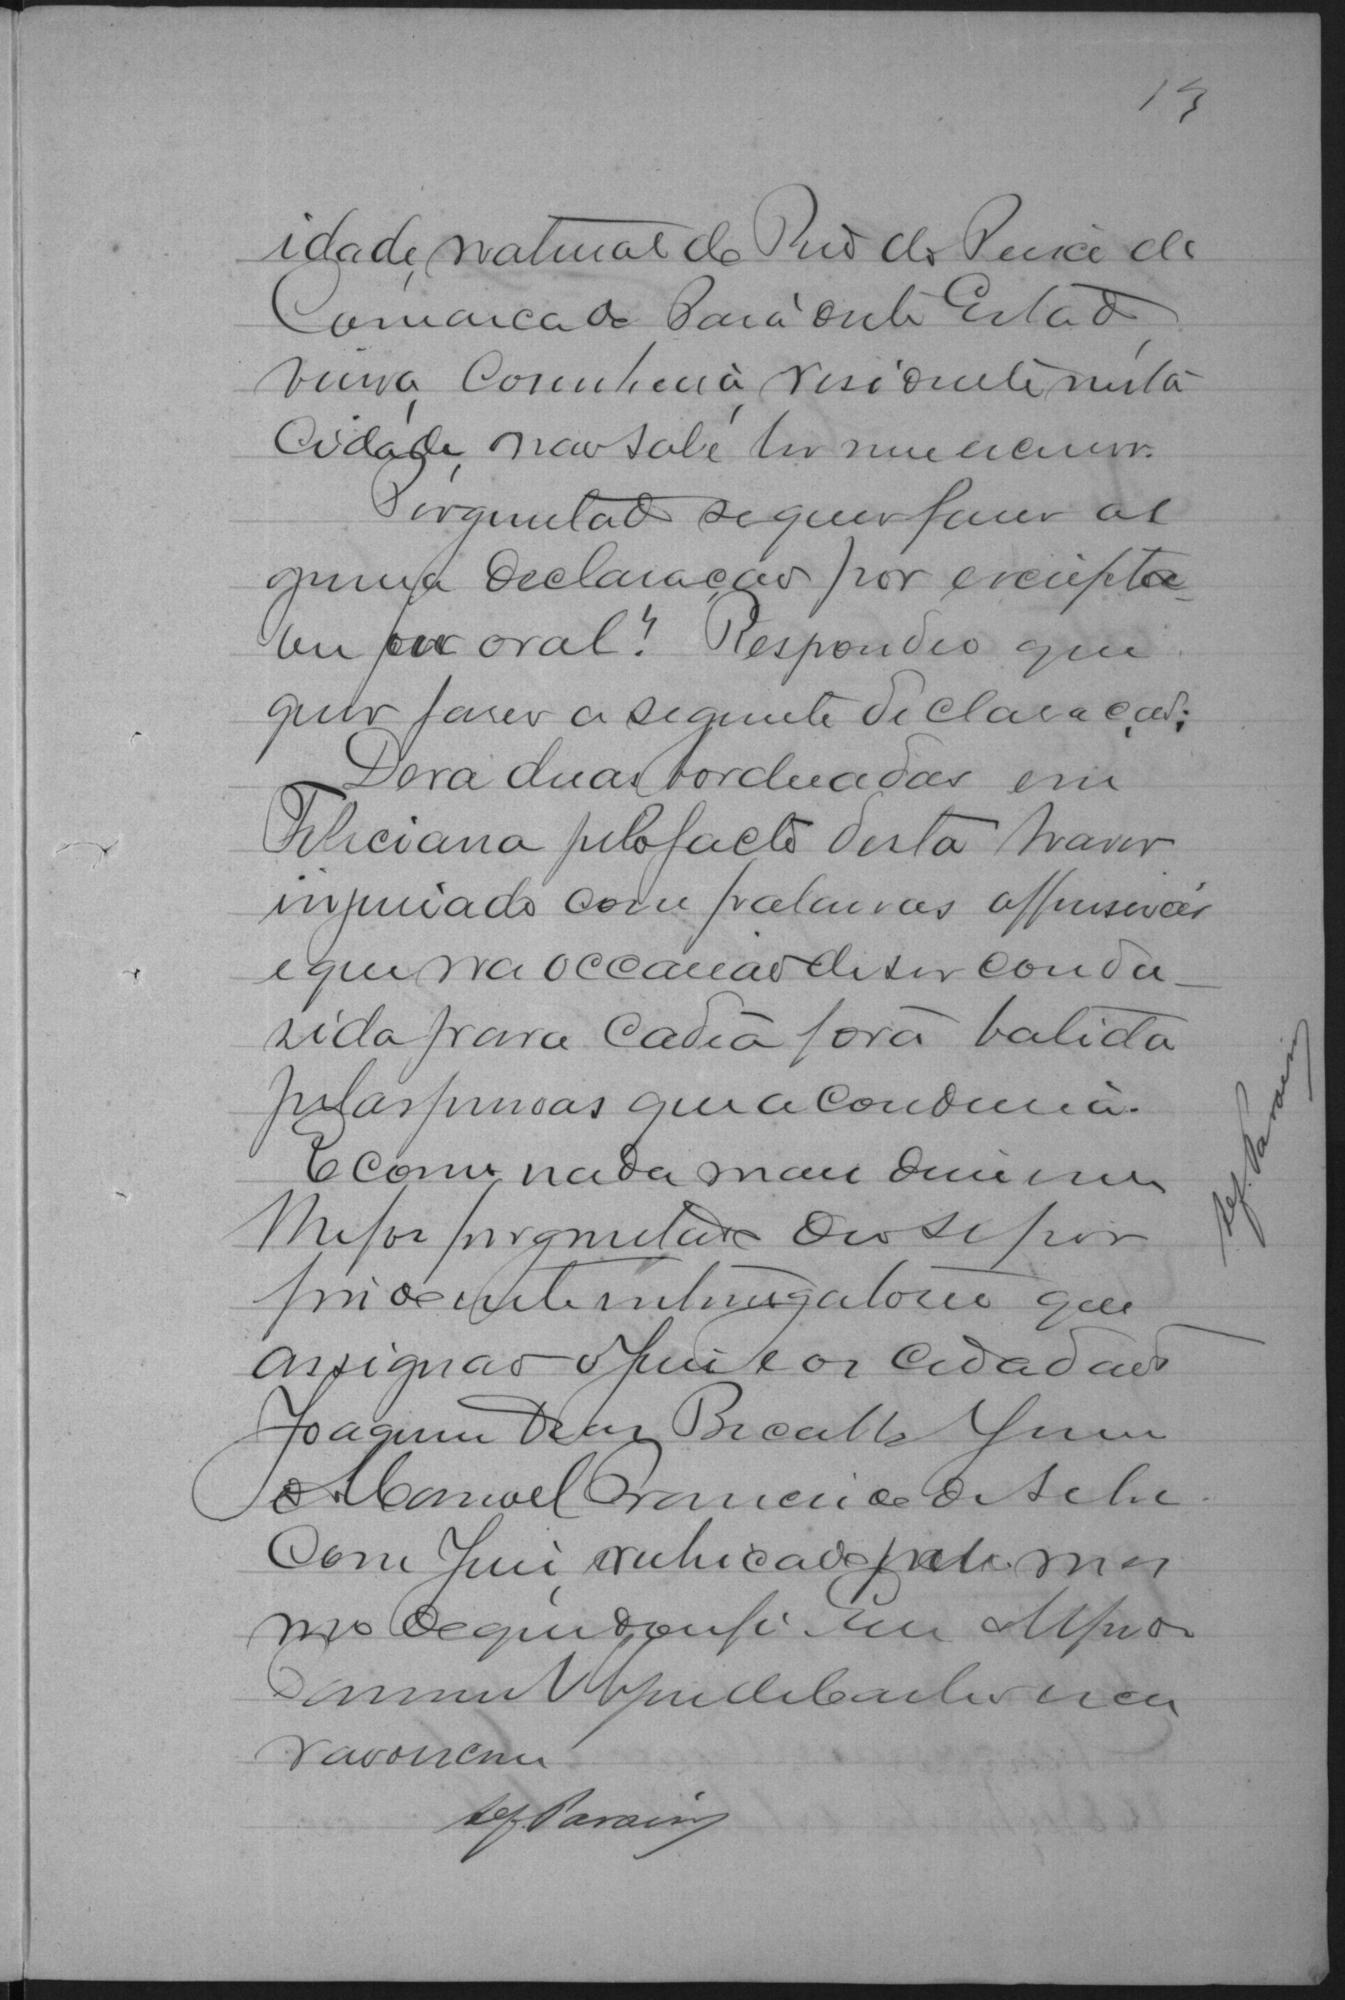 13
idade, natural do Rio do Peixe da
Comarca do Pará deste Estado,
viuva, Cosinheira, residente nesta
Cidade, não sabe ler nem escrever.
Perguntado se quer faser al
guma declaração por escripto
ou por oral? Respondeo que
quer faser a seguinte declaração:
Dera duas borduadas em
Feliciana pelo facto desta haver
injuriado com palavras offensivas
e que na occasião de ser condu-
sida para Cadeia fora batida
pelas pessoas que a condusia.
E como nada mais disse nem
lhe foi perguntado deo-se por
findo este interrogatorio que
assignão o Juiz e os cidadãos
Joaquim Dias Bicalho Junior
e Manoel Francisco da Silva
com Juiz, rubricado pelo mes
mo de que dou fé. Eu
escri
vão escrevi